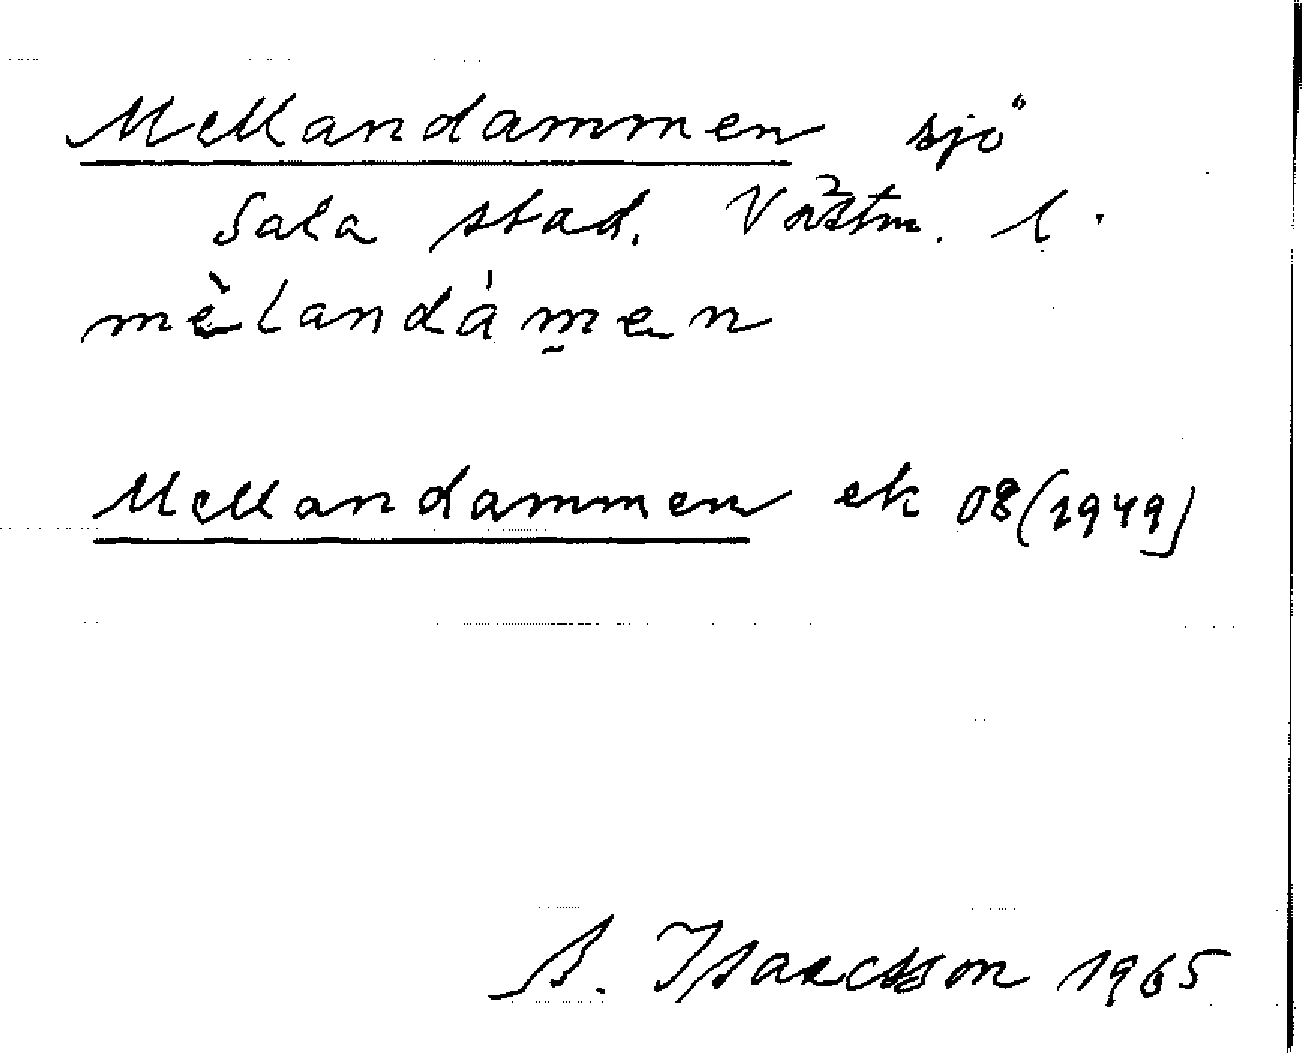 Mellandammen sjö
Sala stad. Västm. l.
mèlandám̱en
Mellandammen ek 08 (1949)
B. Isacsson 1965